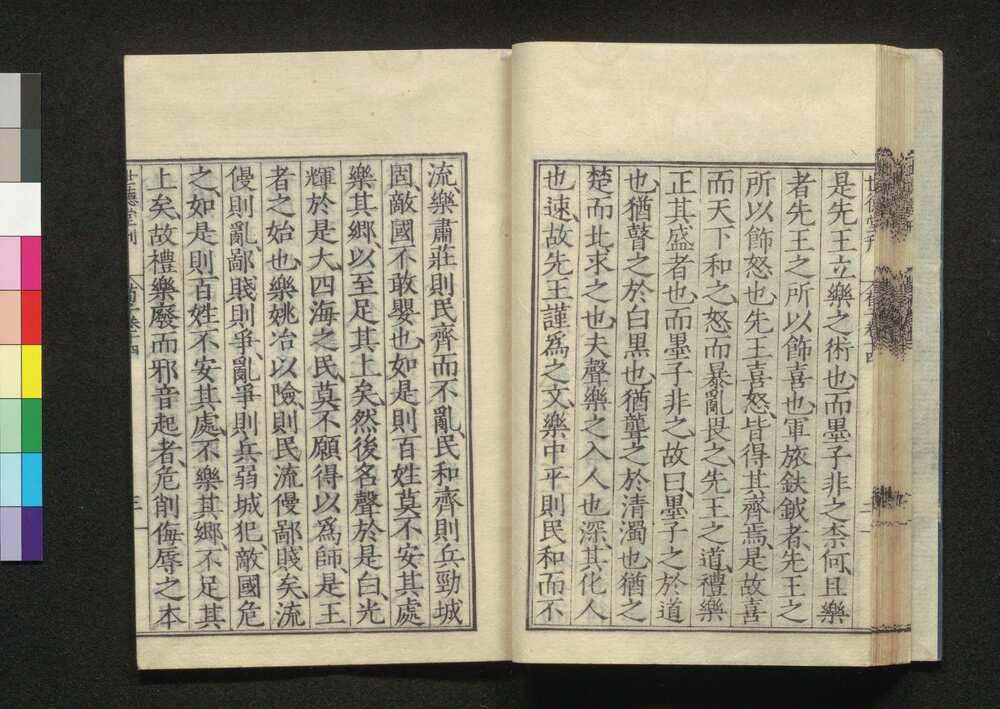 是先王立樂之術也、而墨子非之、柰何、且樂
者先王之所以飾喜也、軍旅鈇鉞者、先王之
所以飾怒也、先王喜怒、皆得其齊焉、是故喜
而天下和之、怒而暴亂畏之、先王之道、禮樂
正其盛者也、而墨子非之、故曰、墨子之於道
也、猶瞽之於白黒也、猶聾之於清濁也、猶之
楚而北求之也、夫聲樂之入人也深、其化人
也速、故先王謹爲之文、樂中平則民和而不
流、樂肅莊則民齊而不亂、民和齊則兵勁城
固、敵國不敢嬰也、如是則百姓莫不安其處
樂其鄉、以至足其上矣、然後名聲於是白、光
輝於是大、四海之民、莫不願得以爲師、是王
者之始也、樂姚冶以險、則民流僈鄙賤矣、流
僈則亂、鄙賤則爭、亂爭則兵弱城犯敵國危
之、如是則百姓不安其處、不樂其鄉、不足其
上矣、故禮樂廢而邪音起者、危削侮辱之本
世德堂刊
三